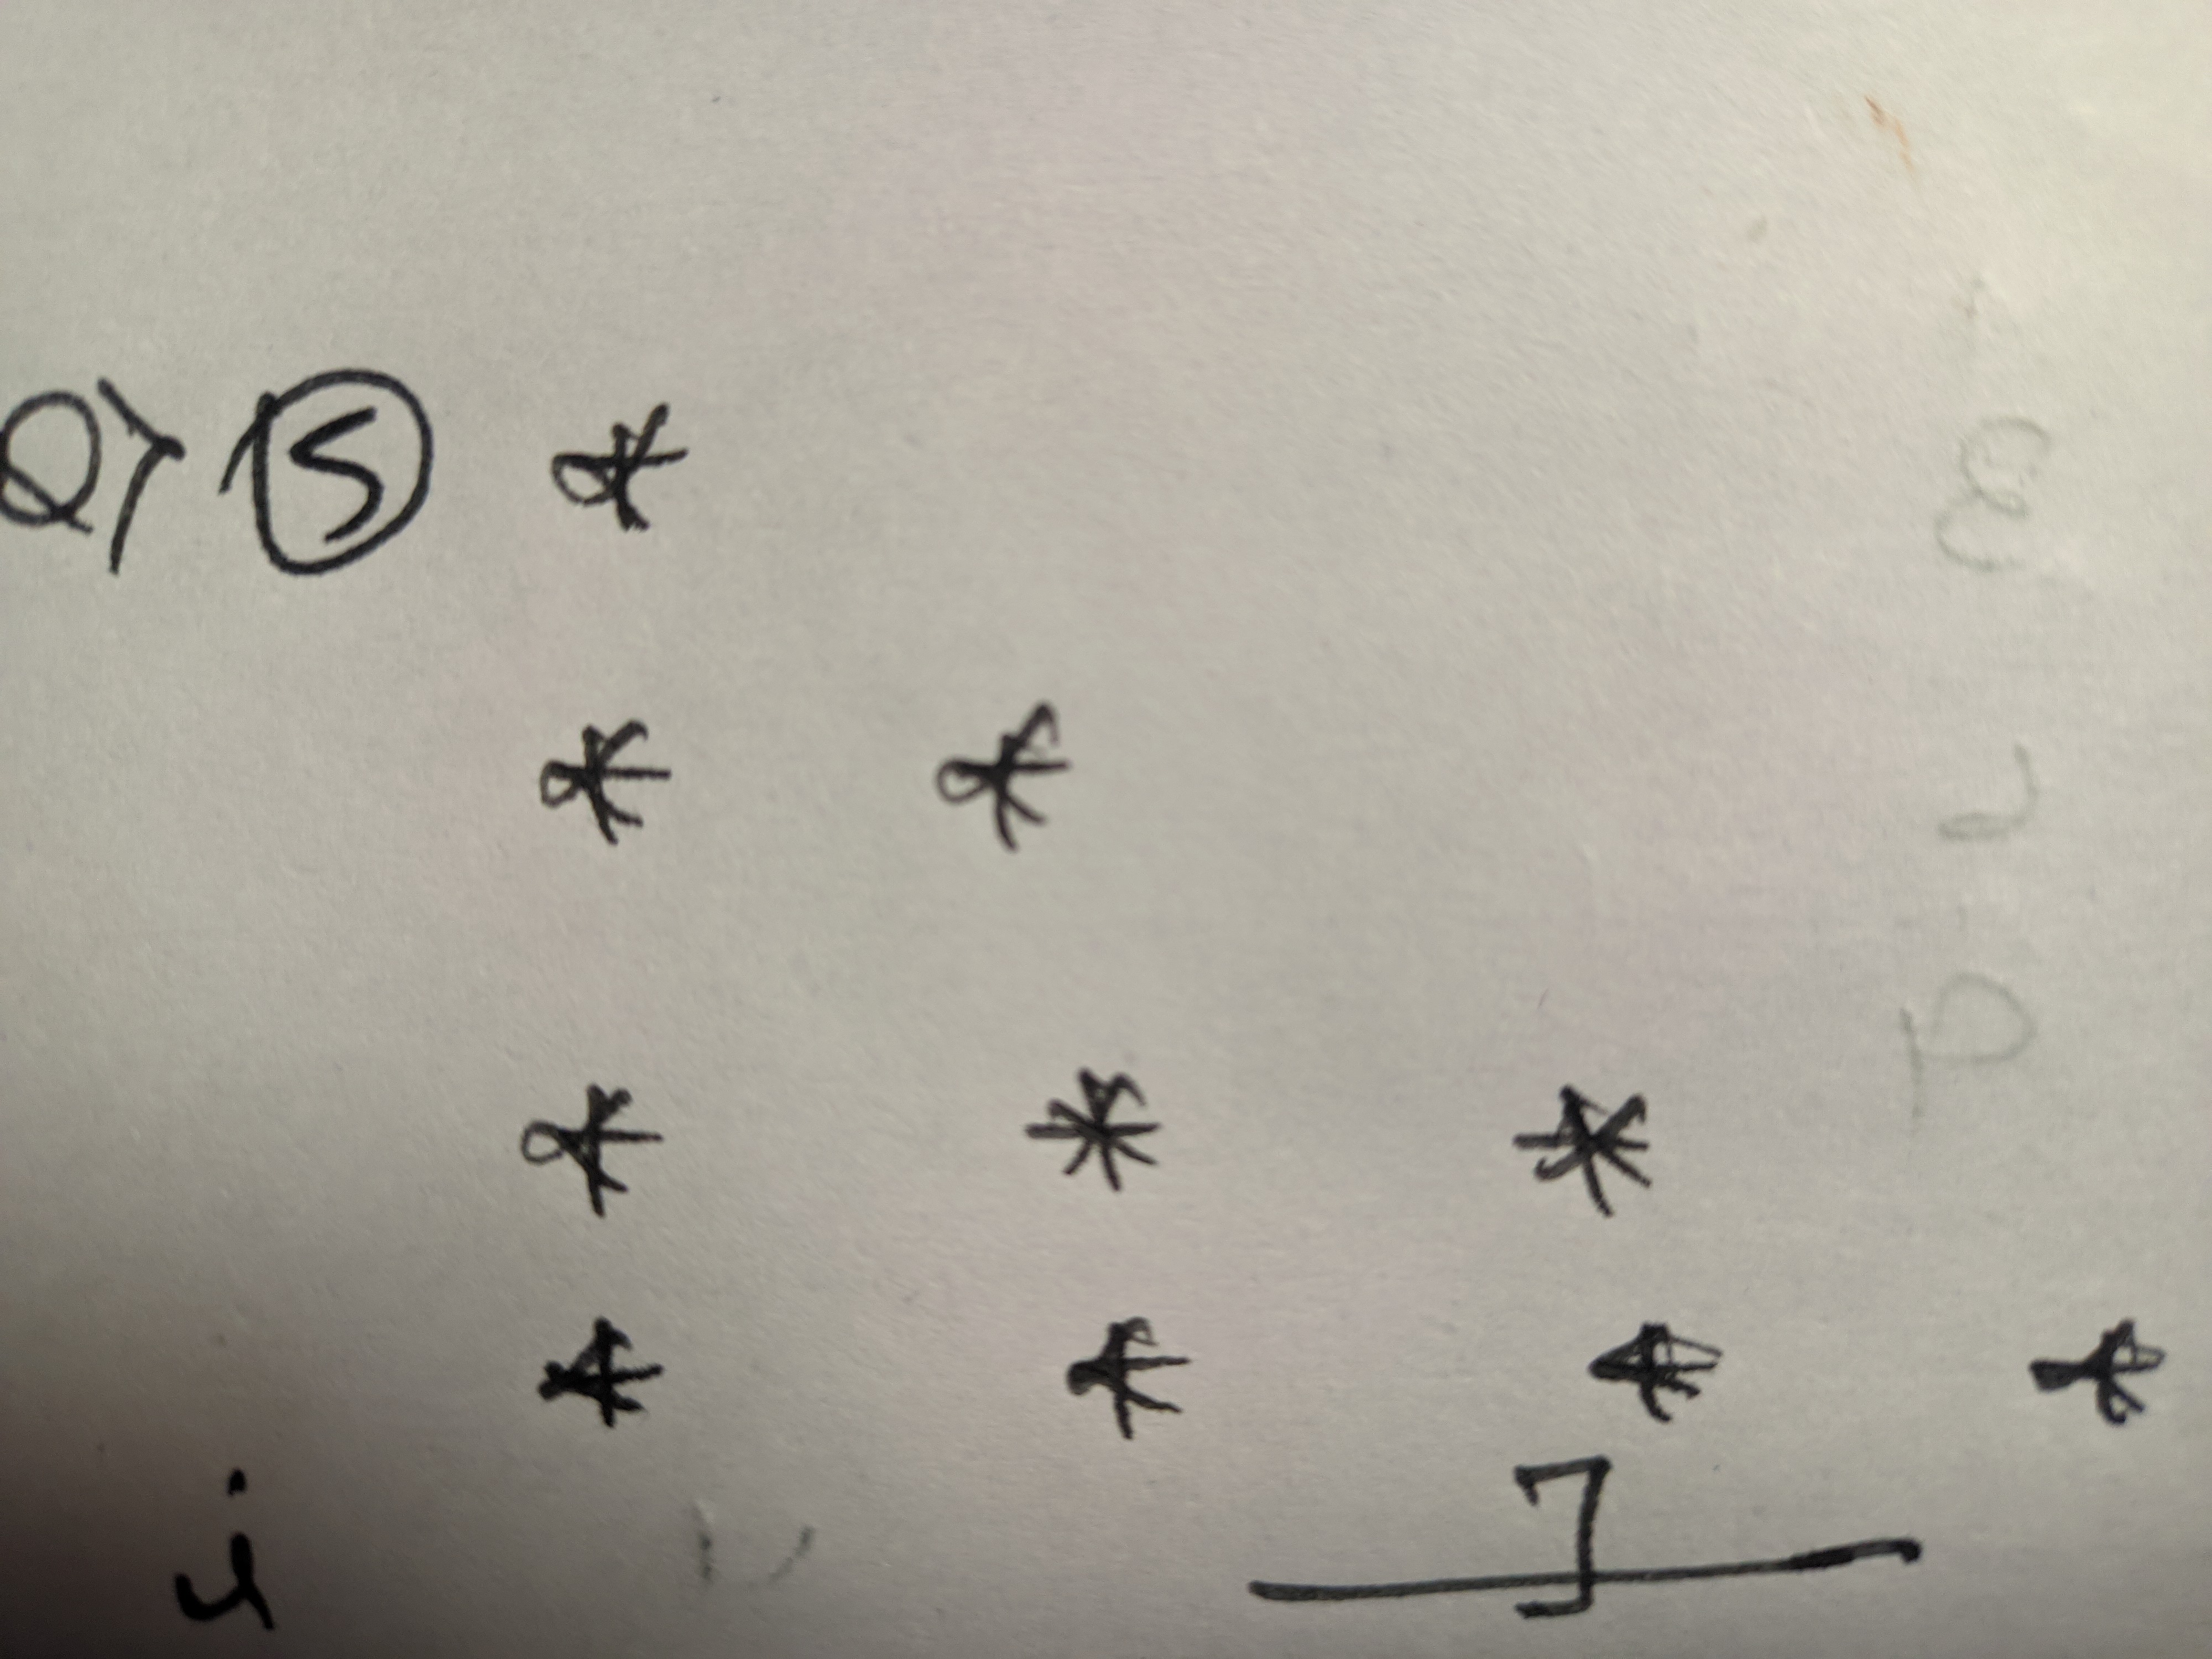 Q) ⑤ *
* *
* * *
* * * *
i J